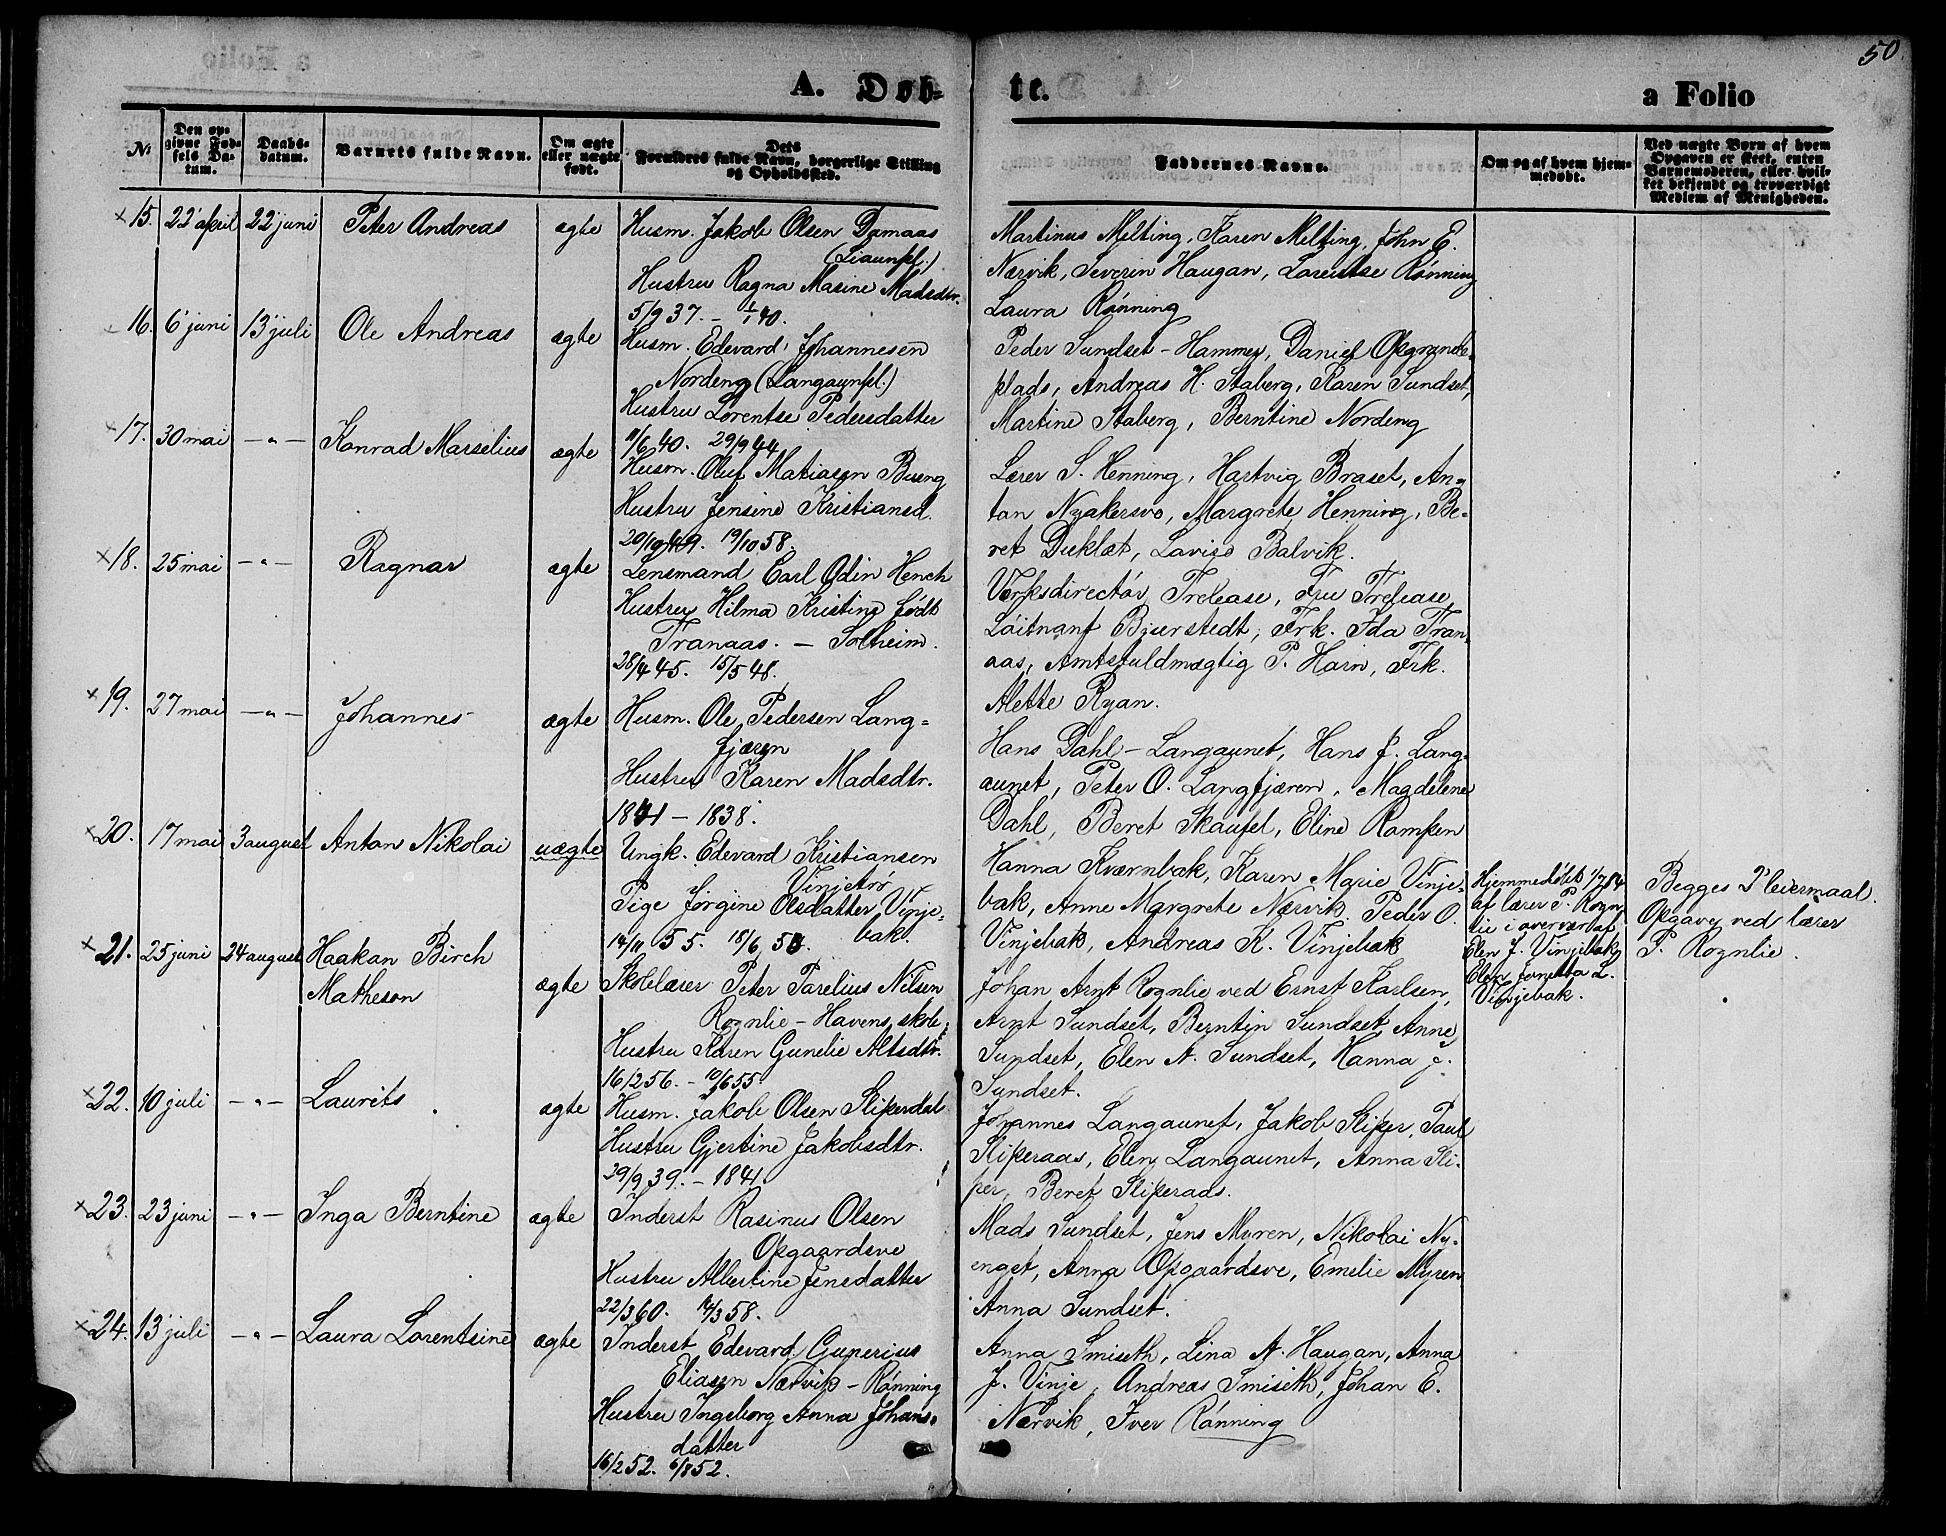 50
A. Døb=
te.
a Folio
№
Den op-
givne Fød-
sels Da-
tum.
Daabs-
datum.
Barnets fulde Navn.
Om ægte
eller uægte
født.
Dets
Forældres fulde Navn, borgerlige Stilling
og Opholdssted.
Faddernes Navne.
Om og af hvem hjem-
medøbt.
Ved uægte Børn af hvem
Opgaven er skeet, enten
Barnemoderen, eller hvil-
ket bekjendt og troværdigt
Medlem af Menigheden.
15. 22 april 22 juni Peter Andreas ægte Husm. Jakob Olsen Damaas
(Liaunfl.)
Hustru Ragna Masine Madsdtr.
5/9 37. - 1/1 40.
Martinus Melting, Karen Melting, John E.
Nærvik, Severin Haugan, Lorentse Rønning
Laura Rønning
16. 6 juni 13 juli Ole Andreas ægte Husm. Edevard Johannesen
Nordeng (Langaunfl.)
Hustru Lorentse Pedersdatter
11/6 40. 29/9 44
Peder Sundset-Hammer, Daniel Opgrande-
plads, Andreas H. Staberg, Karen Sundset,
Martine Staberg, Berntine Nordeng
17. 30 mai -"- Konrad Marselius ægte Husm. Oluf Matiasen Bueng
Hustru Jensine Kristiansd.
20/10 49. 19/10 58.
Lærer S. Henning, Hartvig Braset, An-
ton Nyakersvo, Margrete Henning, Be-
ret Duklæt, Lavise Balvik.
18. 25 mai -"- Ragnar ægte Lensmand Carl Odin Hench
Hustru Hilma Kristine født
Tranaas. - Solheim.
28/4 45. 15/5 48.
Verksdirectør Trelease, Fru Trelease
Løitnant Bjerstedt, Frk. Ida Tran-
aas, Amtsfuldmægtig P. Hain, Frk.
Alette Ryan.
19. 27 mai -"- Johannes ægte Husm. Ole Pedersen Lang=
fjæren
Hustru Karen Madsdtr.
1841 - 1838.
Hans Dahl-Langaunet, Hans J. Lang-
aunet, Peter O. Langfjæren, Magdelene
Dahl, Beret Skaufel, Eline Rampen
20. 17 mai 3 august Anton Nikolai uægte Ungk. Edevard Kristiansen
Vinjetrø
Pige Jørgine Olsdatter Vinje-
bak.
14/11 55. 18/6 53
Hanna Kværnbak, Karen Marie Vinje-
bak, Anne Margrete Nærvik, Peder O.
Vinjebak, Andreas K. Vinjebak
Hjemmedøbt 1/7 84
af lærer P. Rogn-
lie i overvær af
Elen J. Vinjebak,
Elen Jonetta L.
Vinjebak.
Begges 1' leiermaal.
Opgave ved lærer
P. Rognlie.
21. 25 juni 24 august Haakan Birch
Matheson ægte Skolelærer Peter Parelius Nilsen
Rognlie - Havens skole
Hustru Karen Gunelie Altsdtr.
16/2 56. - 10/6 55.
Johan Arnt Rognlie ved Ernst Karlsen,
Arnt Sundset, Berntin Sundset, Anne
Sundset, Elen A. Sundset, Hanna J.
Sundset.
22. 10 juli -"- Laurits ægte Husm. Jakob Olsen Sliperdal
Hustru Gjertine Jakobsdtr.
29/9 39. - 1841.
Johannes Langaunet, Jakob Sliper, Paul
Sliperaas, Elen Langaunet, Anna Sli-
per, Beret Sliperaas.
23. 23 juni -"- Inga Berntine ægte Inderst Rasinus Olsen
Opgaardsve
Hustru Albertine Jensdatter
22/3 60. 14/3 58.
Mads Sundset, Jens Myren, Nikolai Ny-
enget, Anna Opgaardsve, Emelie Myren
Anna Sundset.
24. 13 juli -"- Laura Lorentsine ægte Inderst Edevard Guperius
Eliasen Nærvik - Rønning
Hustru Ingeborg Anna Johans-
datter
16/2 52. 6/8 52.
Anna Smiseth, Lina A. Haugan, Anna
J. Vinje, Andreas Smiseth, Johan E.
Nærvik, Iver Rønning